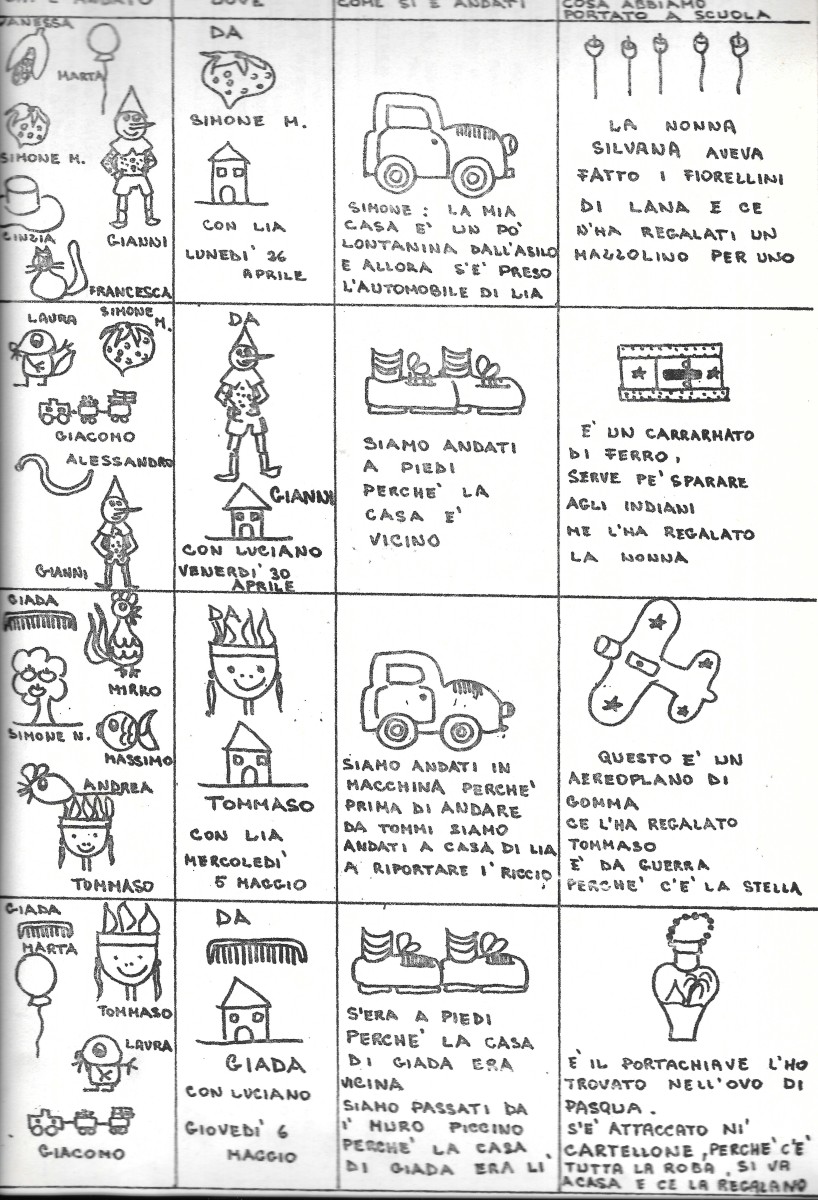 DOVE
COME SI È ANDATI
COSA ABBIAMO
PORTATO A SCUOLA
VANESSA
MARTA
SIMONE M.
CINZIA
GIANNI
FRANCESCA
DA
SIMONE M.
CON LIA
LUNEDI' 26
APRILE
SIMONE : LA MIA
CASA E' UN PO'
LONTANINA DALL'ASILO
E ALLORA S'E' PRESO
L'AUTOMOBILE DI LIA
LA NONNA
SILVANA AVEVA
FATTO I FIORELLINI
DI LANA E CE
N'HA REGALATI UN
MAZZOLINO PER UNO
LAURA
SIMONE M.
GIACOMO
ALESSANDRO
GIANNI
DA
GIANNI
CON LUCIANO
VENERDI' 30
APRILE
SIAMO ANDATI
A PIEDI
PERCHE' LA
CASA E'
VICINO
E' UN CARRARMATO
DI FERRO,
SERVE PE' SPARARE
AGLI INDIANI
ME L'HA REGALATO
LA NONNA
GIADA
MIRKO
SIMONE N.
MASSIMO
ANDREA
TOMMASO
DA
TOMMASO
CON LIA
MERCOLEDI'
5 MAGGIO
SIAMO ANDATI IN
MACCHINA PERCHE'
PRIMA DI ANDARE
DA TOMMI SIAMO
ANDATI A CASA DI LIA
A RIPORTARE I' RICCIO
QUESTO E' UN
AEREOPLANO DI
GOMMA
CE L'HA REGALATO
TOMMASO
E' DA GUERRA
PERCHE' C'E' LA STELLA
GIADA
MARTA
TOMMASO
LAURA
GIACOMO
DA
GIADA
CON LUCIANO
GIOVEDI' 6
MAGGIO
S'ERA A PIEDI
PERCHE' LA CASA
DI GIADA ERA
VICINA
SIAMO PASSATI DA
I' MURO PICCINO
PERCHE' LA CASA
DI GIADA ERA LI
E' IL PORTACHIAVE L'HO
TROVATO NELL'OVO DI
PASQUA.
S'E' ATTACCATO NI'
CARTELLONE, PERCHE' C'E'
TUTTA LA ROBA, SI VA
A CASA E CE LA REGALANO